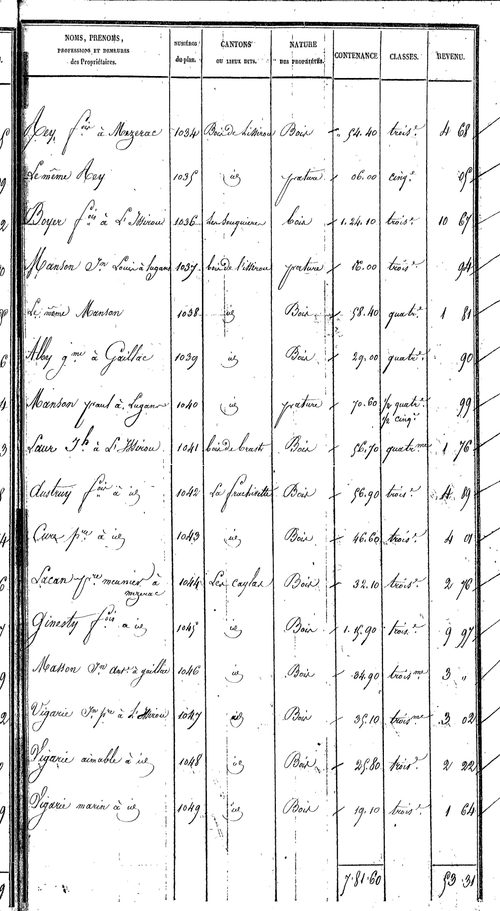 NOMS, PRENOMS, PROFESSIONS ET DEMEURES des Propriétaires. NUMÉROS du plan. CANTONS OU LIEUX DITS. NATURE DES PROPRIÉTÉS. CONTENANCE CLASSES. REVENU.
Rey fois à Mezerac 1034 Bois de Bois 54.40 trois.e 4 68
Le même Rey 1035 id pature 06.00 cinq.e 05
Boyer fois à L' 1036 bois 1.24.10 trois.e 10 67
Manson Jn Louis à Lugan 1037 bois de pature 16.00 trois.e 94
Le même Manson 1038 id Bois 58.40 quatr.e 1 81
Alby g.me à Gaillac 1039 id Bois 29.00 quatr.e 90
Manson paul à Lugan 1040 id pature 70.60 1/2 quatr.e 1/2 cinq.e 99
Laur J.h à L' 1041 bois de Bois 56.70 quatr.me 1 76
Austruy fois à id 1042 Bois 56.90 trois.e 4 89
Cure p.re à id 1043 id Bois 46.60 trois.e 4 01
Lacan p.re meunier à mezerac 1044 Les caylas Bois 32.10 trois.e 2 76
Ginesty fois a id 1045 id Bois 1.15.90 trois.e 9 97
Masson Jn ant. à gaillac 1046 id Bois 34.90 trois.me 3 "
Vigarie Jn p.re à L' 1047 id Bois 35.10 trois.me 3 02
Vigarie aimable à id 1048 id Bois 25.80 trois.e 2 22
Vigarie marin à id 1049 id Bois 19.10 trois.e 1 64
7.81.60 53.31